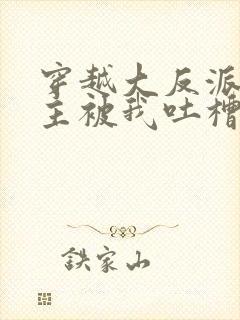 穿越大反派
主被我吐槽
鉄家山